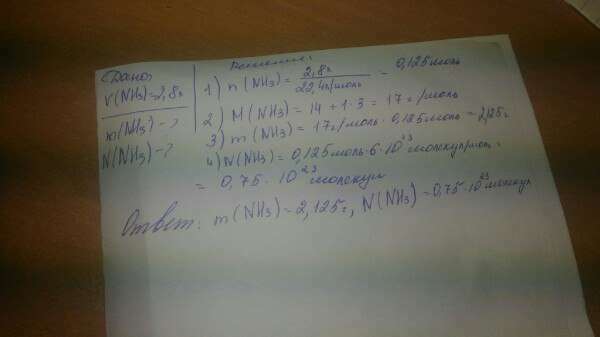 Дано:
V(NH3)=2,8л
m(NH3)-?
N(NH3)-?
Решение:
1) n(NH3)= 2,8л / 22,4л/моль = 0,125моль
2) M(NH3)= 14+1·3=17г/моль
3) m(NH3)=17г/моль·0,125моль=2,125г
4) N(NH3)=0,125моль·6·10²³молекул/моль=
= 0,75·10²³молекул
Ответ: m(NH3)=2,125г, N(NH3)=0,75·10²³молекул